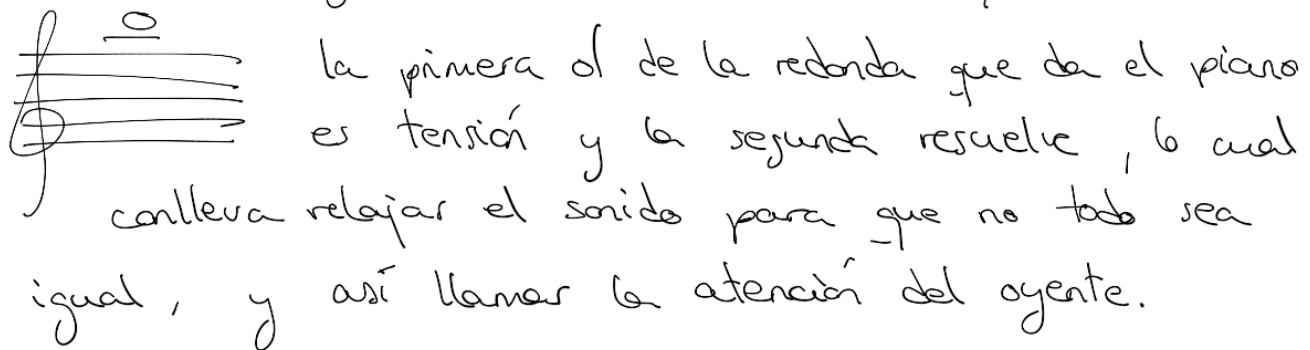 la primera d de la redonda que da el piano
es tensión y la segunda resuelve, lo cual
conlleva relajar el sonido para que no todo sea
igual, y así llamar la atención del oyente.